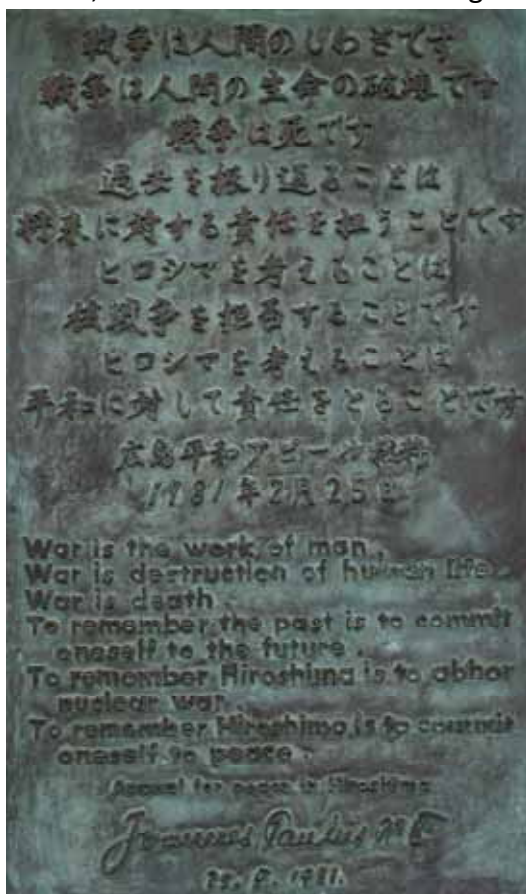 戦争は人間のしわざです
戦争は人間の生命の破壊です
戦争は死です
過去を振り返ることは
将来に対する責任を担うことです
ヒロシマを考えることは
核戦争を拒否することです
ヒロシマを考えることは
平和に対して責任をとることです
広島平和アピール
1981年2月25日
War is the work of man.
War is destruction of human life.
War is death.
To remember the past is to commit
oneself to the future.
To remember Hiroshima is to abhor
nuclear war.
To remember Hiroshima is to commit
oneself to peace.
Appeal for peace in Hiroshima
Joannes Paulus
1981.